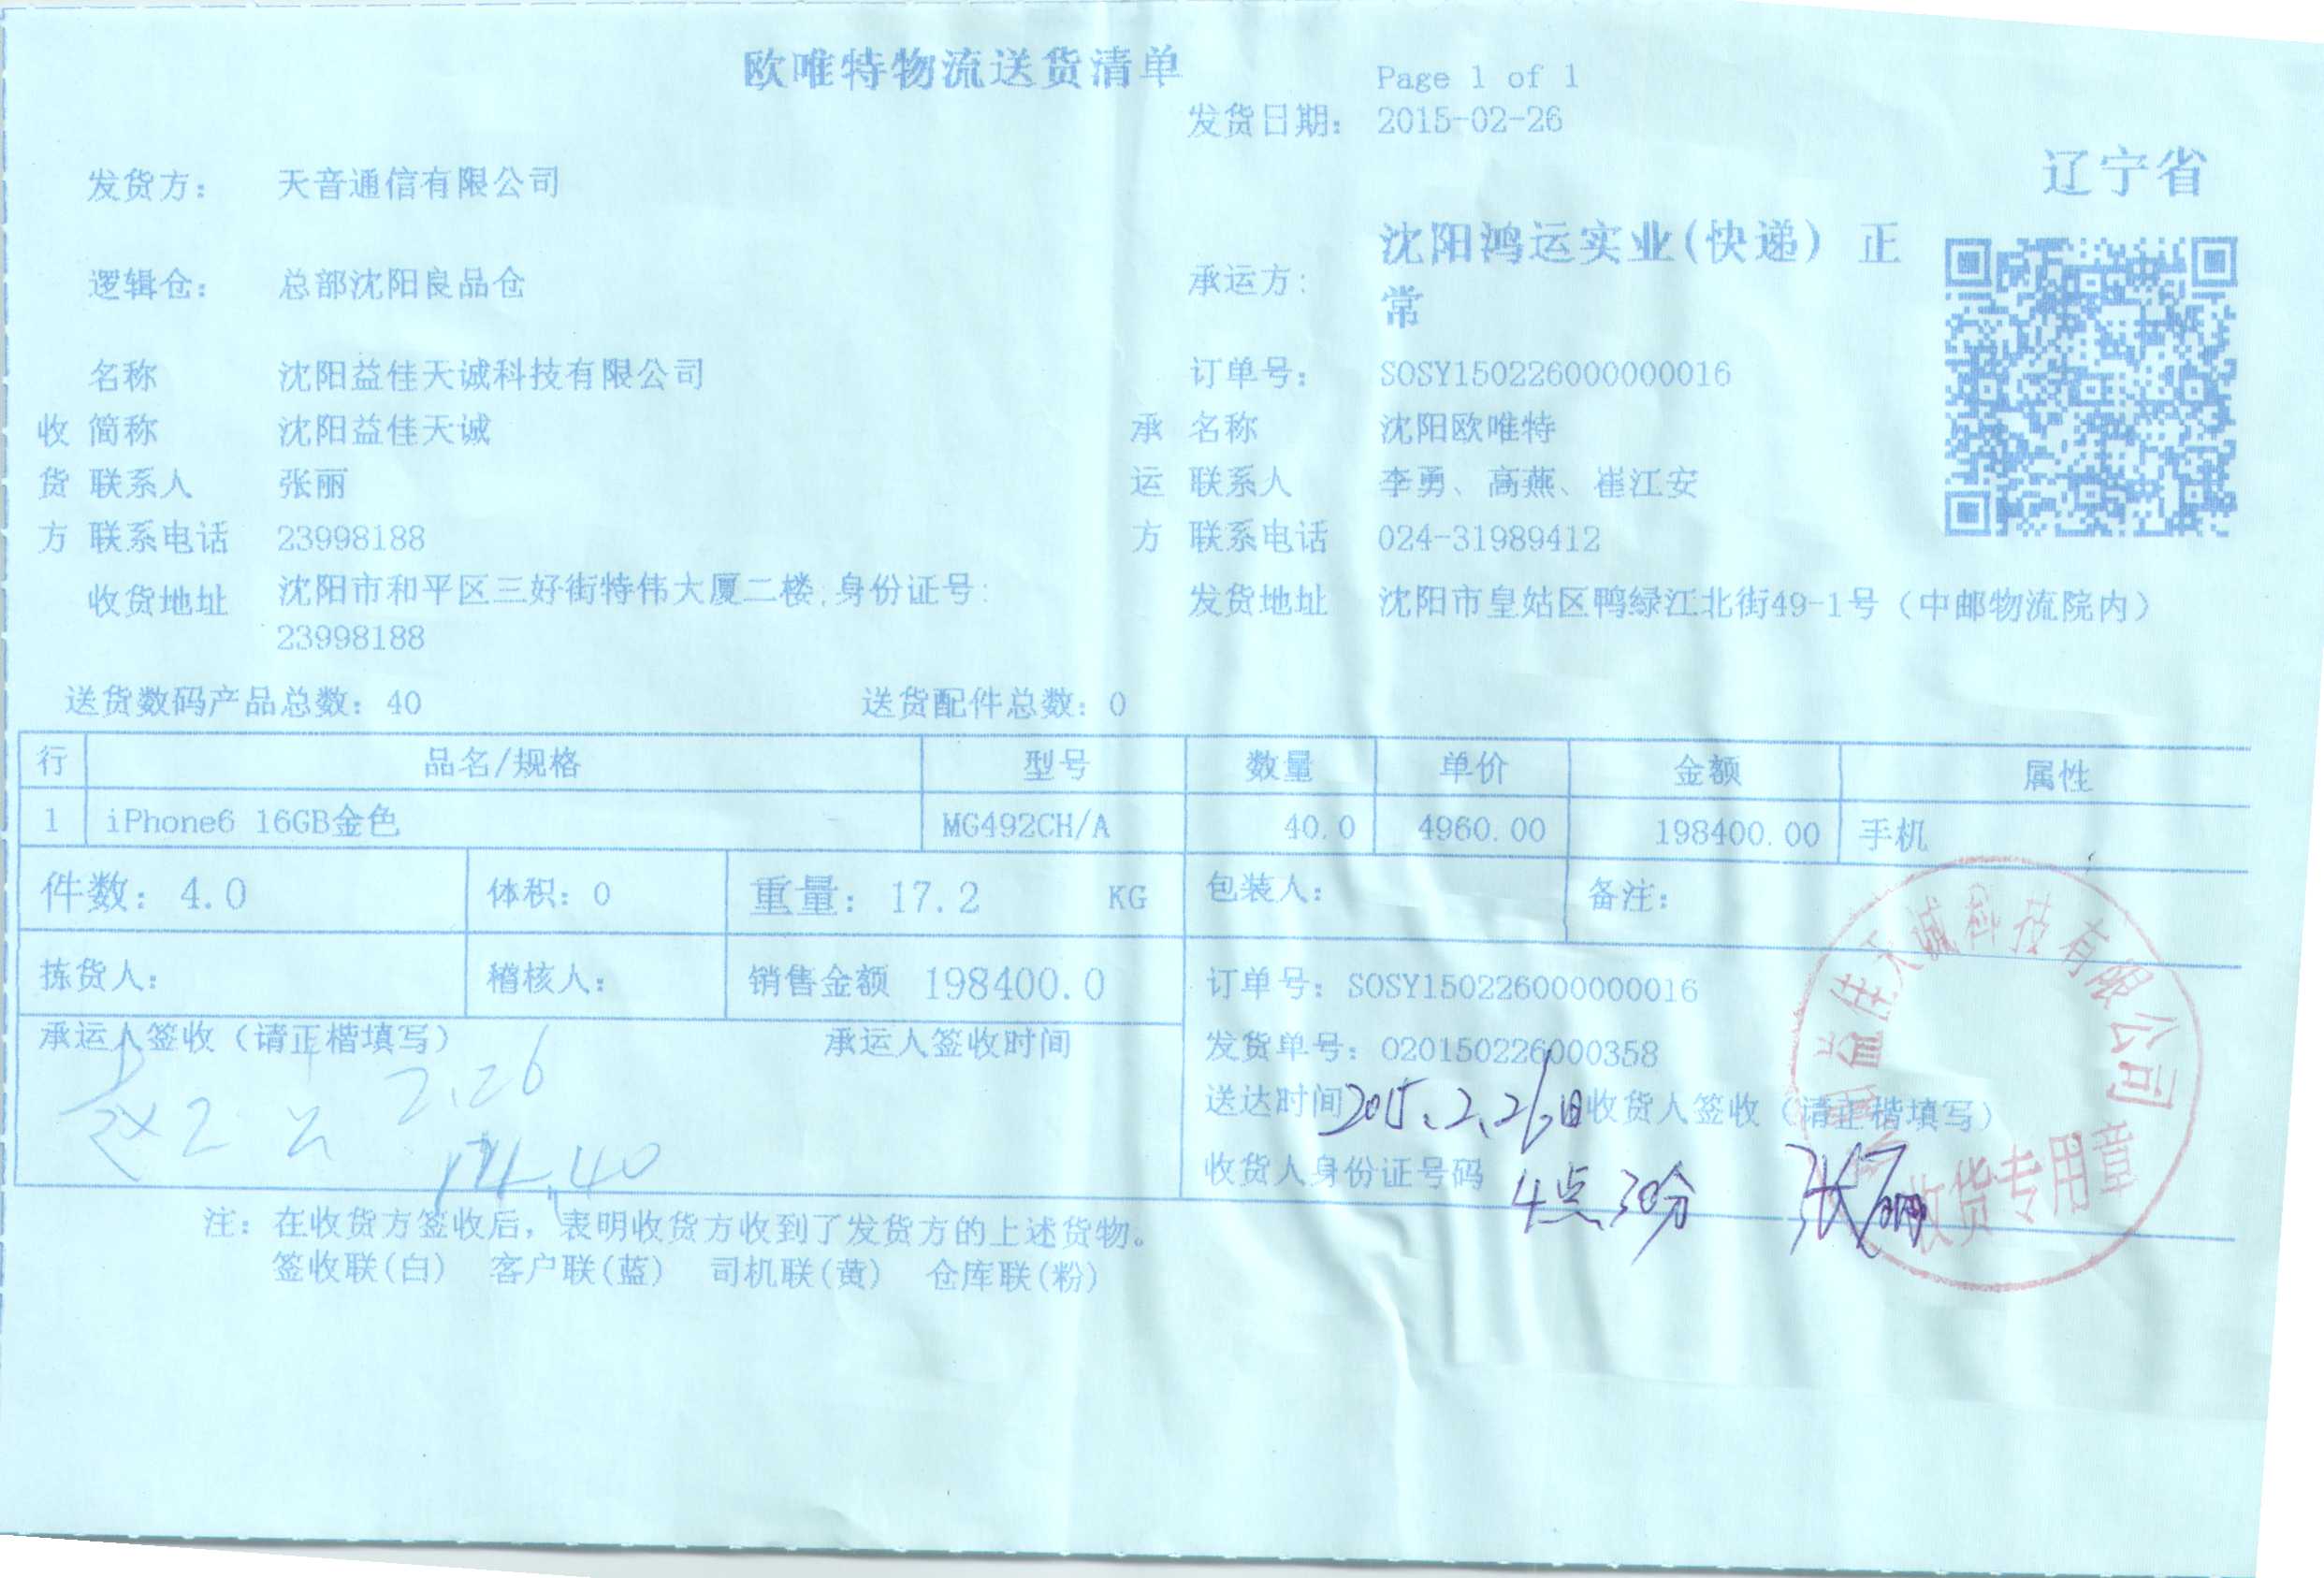 欧唯特物流送货清单
Page 1 of 1
发货日期: 2015-02-26
辽宁省
发货方: 天音通信有限公司
逻辑仓: 总部沈阳良品仓
承运方: 沈阳鸿运实业(快递) 正
常
名称 沈阳益佳天诚科技有限公司
订单号: SOSY150226000000016
收 简称 沈阳益佳天诚
承 名称 沈阳欧唯特
货 联系人 张丽
运 联系人 李勇、高燕、崔江安
方 联系电话 23998188
方 联系电话 024-31989412
收货地址 沈阳市和平区三好街特伟大厦二楼;身份证号:
23998188
发货地址 沈阳市皇姑区鸭绿江北街49-1号（中邮物流院内）
送货数码产品总数: 40 送货配件总数: 0
行 品名/规格 型号 数量 单价 金额 属性
1 iPhone6 16GB金色 MG492CH/A 40.0 4960.00 198400.00 手机
件数: 4.0 体积: 0 重量: 17.2 KG 包装人: 备注:
拣货人: 稽核人: 销售金额 198400.0
订单号: SOSY150226000000016
承运人签收（请正楷填写） 承运人签收时间
2.26
发货单号: 020150226000358
送达时间 2015.2.26日 收货人签收（请正楷填写）
收货人身份证号码 4点30分 张丽
益佳天诚科技有限公司
收货专用章
注: 在收货方签收后, 表明收货方收到了发货方的上述货物。
签收联(白) 客户联(蓝) 司机联(黄) 仓库联(粉)